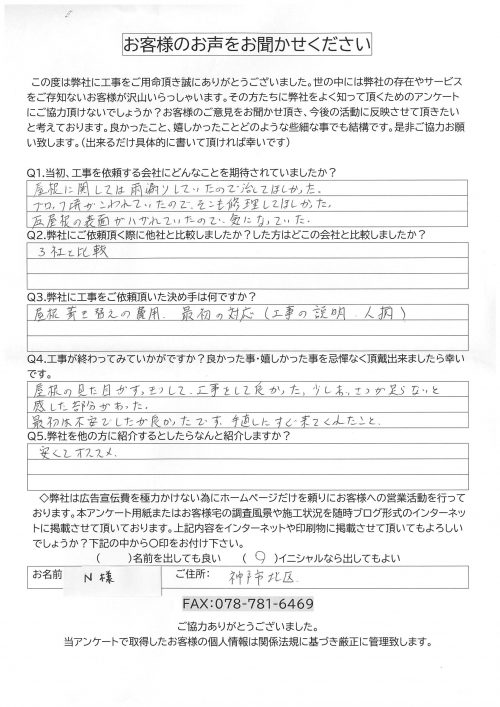 お客様のお声をお聞かせください
この度は弊社に工事をご用命頂き誠にありがとうございました。世の中には弊社の存在やサービス
をご存知ないお客様が沢山いらっしゃいます。その方たちに弊社をよく知って頂くためのアンケート
にご協力頂けないでしょうか？お客様のご意見をお聞かせ頂き、今後の活動に反映させて頂きたい
と考えております。良かったこと、嬉しかったことどのような些細な事でも結構です。是非ご協力お願
い致します。（出来るだけ具体的に書いて頂ければ幸いです）
Q1.当初、工事を依頼する会社にどんなことを期待されていましたか？
屋根に関しては雨漏りしていたので治してほしかった。
ブロック塀がこわれていたので、そこも修理してほしかった。
瓦屋根の表面がハガれていたので、気になっていた。
Q2.弊社にご依頼頂く際に他社と比較しましたか？した方はどこの会社と比較しましたか？
3社と比較
Q3.弊社に工事をご依頼頂いた決め手は何ですか？
屋根葺き替えの費用、最初の対応（工事の説明、人柄）
Q4.工事が終わってみていかがですか？良かった事・嬉しかった事を忌憚なく頂戴出来ましたら幸い
です。
屋根の見た目がすっきりして、工事をして良かった。少しあいさつが足らないと
感じた部分があった。
最初は不安でしたが良かったです。手直しにすぐ来てくれたこと。
Q5.弊社を他の方に紹介するとしたらなんと紹介しますか？
安くてオススメ
◇弊社は広告宣伝費を極力かけない為にホームページだけを頼りにお客様への営業活動を行って
おります。本アンケート用紙またはお客様宅の調査風景や施工状況を随時ブログ形式のインターネッ
トに掲載させて頂いております。上記内容をインターネットや印刷物に掲載させて頂いてもよろしい
でしょうか？下記の中から〇印をお付け下さい。
（　　）名前を出しても良い　（ ○ ）イニシャルなら出してもよい
お名前 N様 ご住所： 神戸市北区
FAX:078-781-6469
ご協力ありがとうございました。
当アンケートで取得したお客様の個人情報は関係法規に基づき厳正に管理致します。